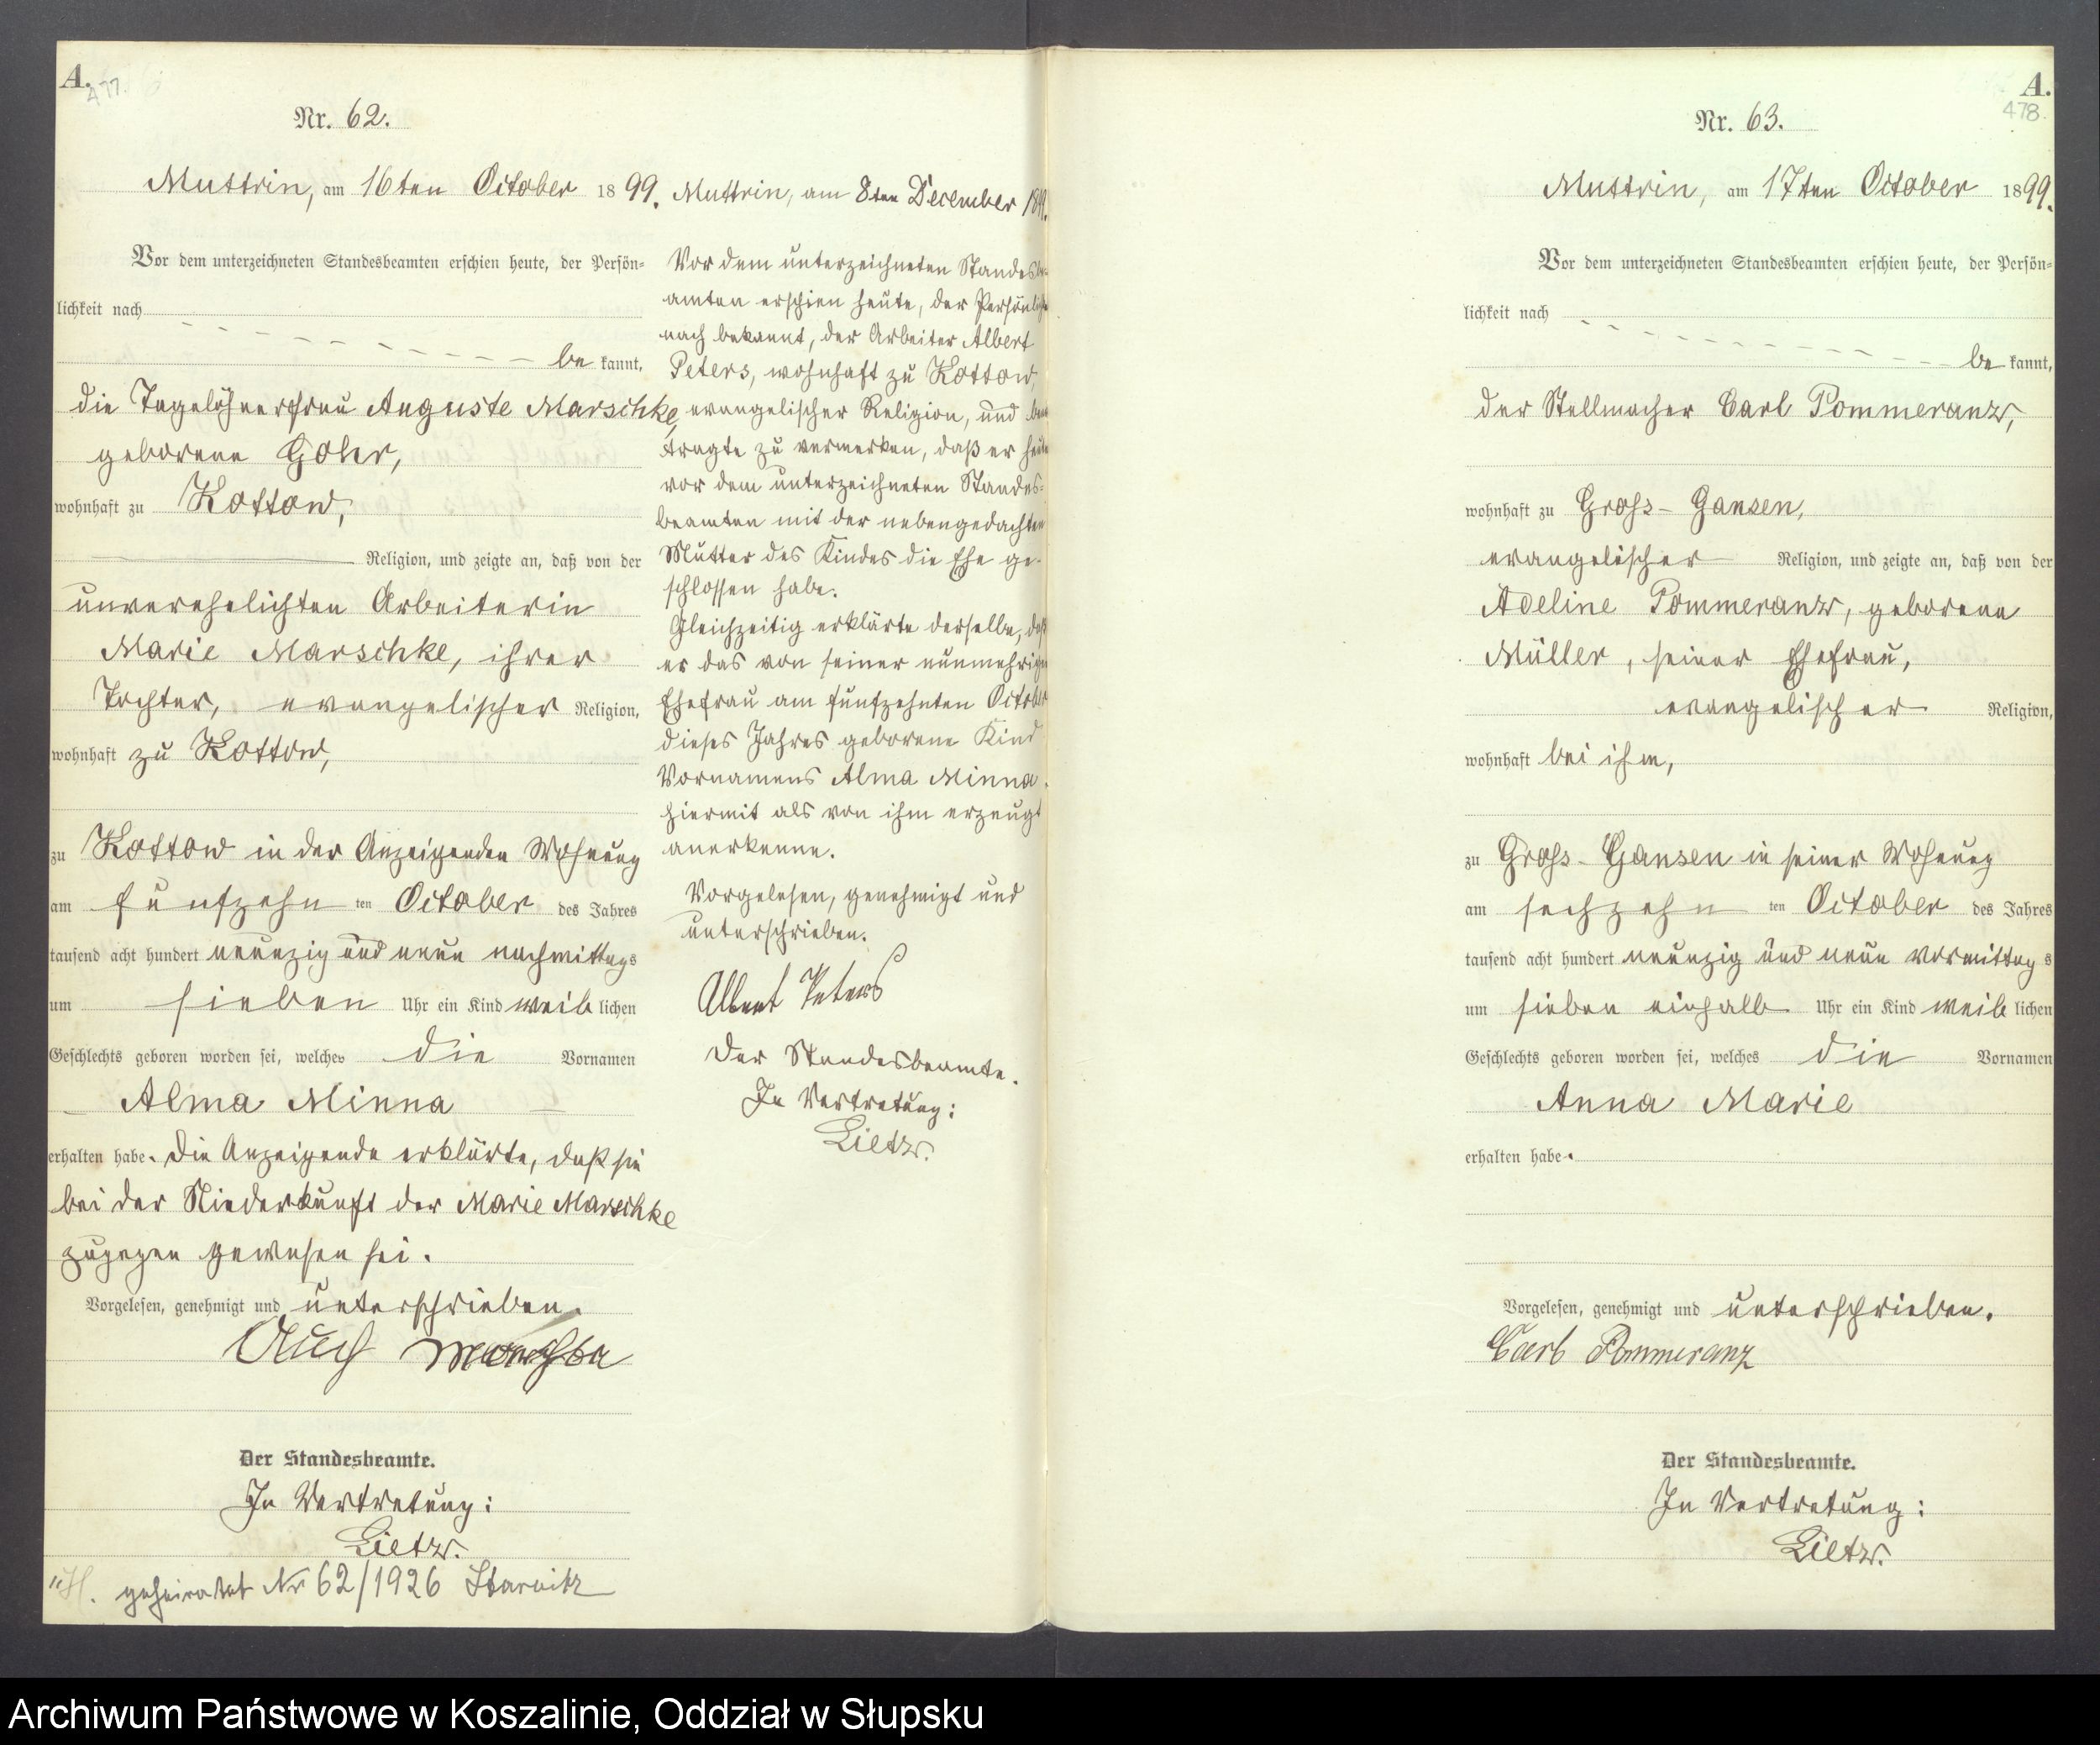 A.
477.
Nr. 62.
Muttrin, am 16ten October 1899.
Vor dem unterzeichneten Standesbeamten erschien heute, der Persön-
lichkeit nach
be kannt,
die Tagelöhnerfrau Auguste Marschke,
geborene Gohr,
wohnhaft zu Kottow,
Religion, und zeigte an, daß von der
unverehelichten Arbeiterin
Marie Marschke, ihrer
Tochter, evangelischer Religion,
wohnhaft zu Kottow,
zu Kottow in der Anzeigenden Wohnung
am fünfzehn ten October des Jahres
tausend acht hundert neunzig und neun nachmittags
um sieben Uhr ein Kind weiblichen
Geschlechts geboren worden sei, welches die Vornamen
Alma Minna
erhalten habe. Die Anzeigende erklärte, daß sie
bei der Niederkunft der Marie Marschke
zugegen gewesen sei.
Vorgelesen, genehmigt und unterschrieben.
Der Standesbeamte.
In Vertretung:
Lietz.
geheiratet Nr 62/1926 Starnitz
Muttrin, am 8ten December 1899.
Vor dem unterzeichneten Standesbe-
amten erschien heute, der Persönlichkeit
nach bekannt, der Arbeiter Albert
Peters, wohnhaft zu Kottow,
evangelischer Religion, und bean
tragte zu vermerken, daß er heute
vor dem unterzeichneten Standes-
beamten mit der nebengedachten
Mutter des Kindes die Ehe ge-
schlossen habe.
Gleichzeitig erklärte derselbe, daß
er das von seiner nunmehrigen
Ehefrau am fünfzehnten October
dieses Jahres geborene Kind
Vornamens Alma Minna
hiermit als von ihm erzeugt
anerkenne.
Vorgelesen, genehmigt und
unterschrieben.
Albert Peters
Der Standesbeamte.
In Vertretung:
Lietz.
A.
478.
Nr. 63.
Muttrin, am 17ten October 1899.
Vor dem unterzeichneten Standesbeamten erschien heute, der Persön-
lichkeit nach
be kannt,
der Stellmacher Carl Pommeranz,
wohnhaft zu Groß-Gansen,
evangelischer Religion, und zeigte an, daß von der
Adeline Pommeranz, geborene
Müller, seiner Ehefrau,
evangelischer Religion,
wohnhaft bei ihm,
zu Groß-Gansen in seiner Wohnung
am sechzehn ten October des Jahres
tausend acht hundert neunzig und neun vormittags
um sieben einhalb Uhr ein Kind weiblichen
Geschlechts geboren worden sei, welches die Vornamen
Anna Marie
erhalten habe.
Vorgelesen, genehmigt und unterschrieben.
Carl Pommeranz
Der Standesbeamte.
In Vertretung:
Lietz.
Archiwum Państwowe w Koszalinie, Oddział w Słupsku